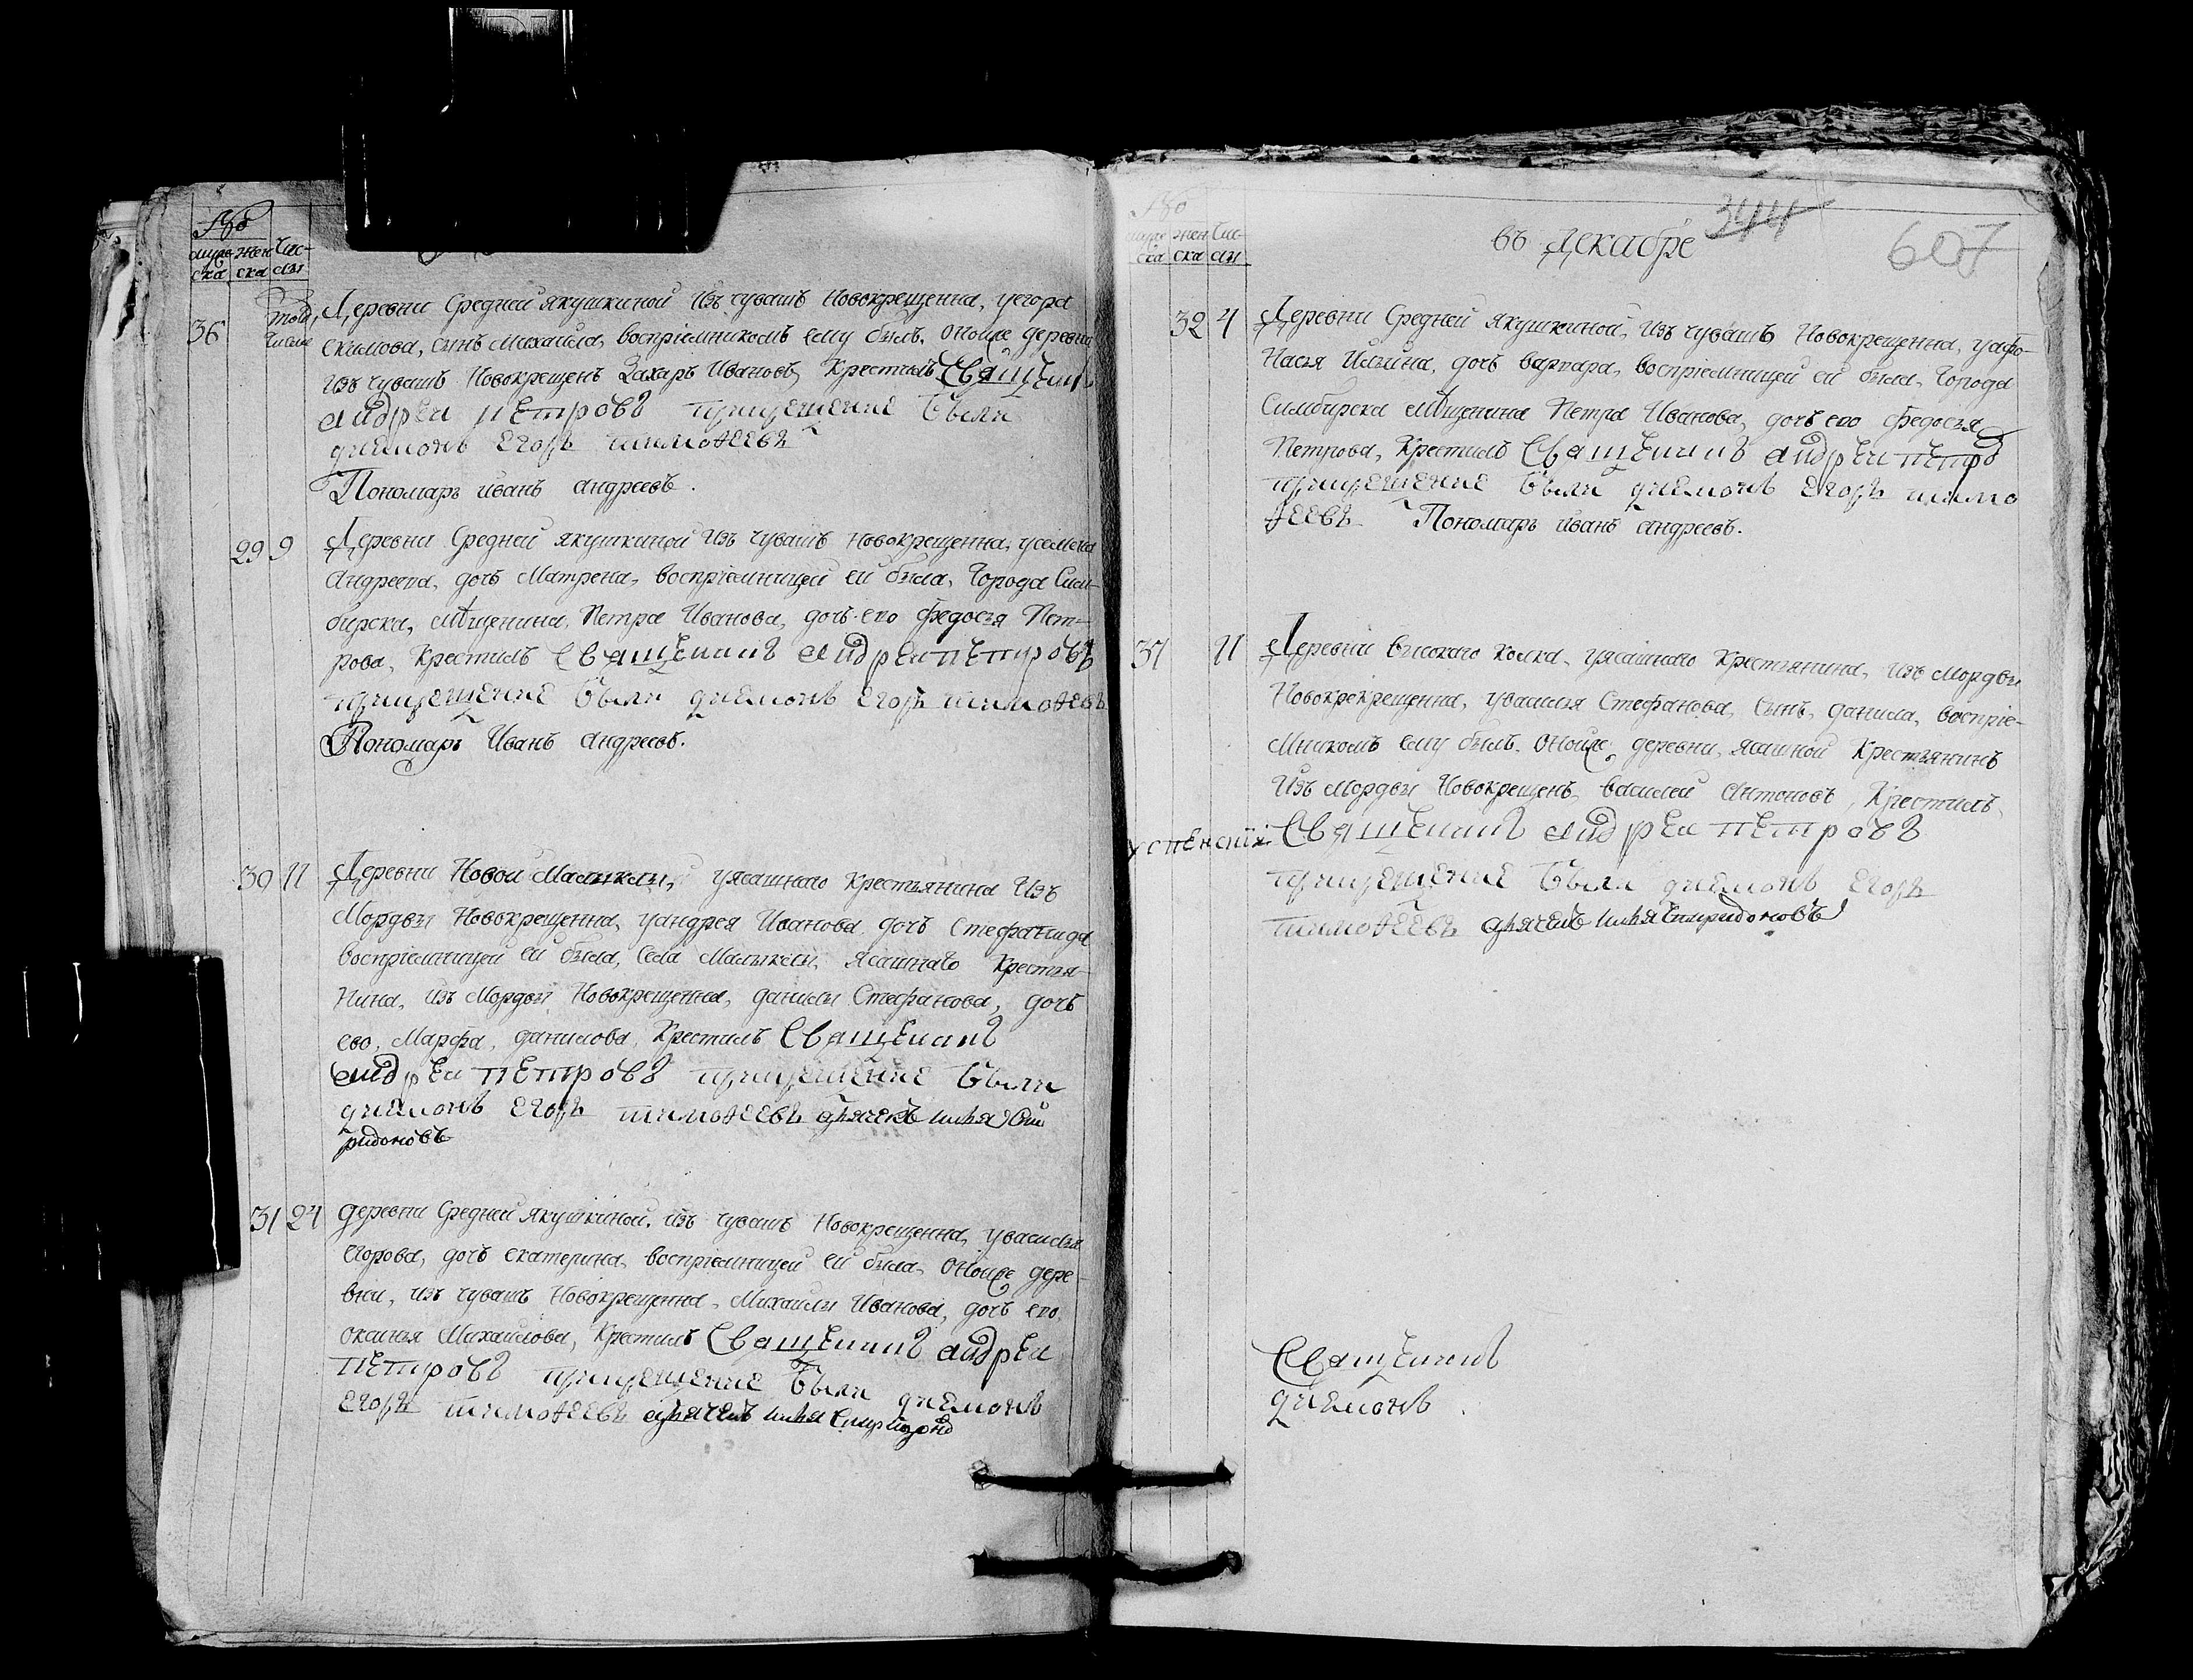 Муже
ска
жен
ска
Чис-
лы
36
Деревни Средней якушкиной Изъ чувашъ Новокрещенна, уегора
Екимова, сынъ Михайла, воспріемникомъ ему былъ, Оноиже деревни
изъ чувашъ Новокрещенъ Захаръ Ивановъ, Крестилъ Священникъ
андреи петровъ при крещение были
диямонъ егоръ тимоѳеевъ
Пономаръ иванъ андреевъ.
29 9
Деревни Средней якушкиной Изъ чувашъ Новокрещенна, усемена
Андреева, дочь Матрена, воспріемницей ей была, Города Сим-
бирска, мѣщенина, Петра Иванова, дочь его федосья Пет-
рова, Крестилъ Священникъ андреи петровъ
при крещение были диямонъ егоръ тимоѳеевъ
Пономаръ Иванъ андреевъ.
30 11
Деревни Новой Малыклы, уясашнаго Крестьянина Изъ
Мордвы Новокрещенна, уандрея Иванова дочь Стефанида
воспріемницей ей была, Села Малыклы, Ясашнаго Крестья-
Нина, изъ Мордвы Новокрещенна, данилы Стефанова, дочь
ево, Марфа, данилова, Крестилъ Священникъ
андреи петровъ при крещение были
диямонъ егоръ тимоѳеевъ дьячекъ илья Спи
ридоновъ
31 24
деревни Средней якушкиной, изъ чувашъ Новокрещенна, увасилья
Егорова, дочь екатерина, воспріемницей ей была, Оноиже дере-
вни, изъ чувашъ Новокрещенна, Михаилы Иванова, дочь его
оксинья Михайлова, Крестилъ Священникъ андреи
петровъ при крещение были диямонъ
егоръ тимоѳеевъ дьячекъ илья Спиридоно
Муже
ска
жен
ска
Чис-
лы
въ декабре
344
607
32 4
Деревни Средней якушкиной, изъ чувашъ Новокрещенна, уафо-
Насья Ильина, дочь варвара, воспріемницей ей была, Города
Симбирска мѣщенина Петра Иванова, дочь его федосья
Петрова, Крестилъ Священникъ андреи петро
при крещение были диямонъ егоръ тимо
ѳеевъ Пономаръ иванъ андреевъ.
37 11
Деревни высокаго колка, уясашнаго Крестьянина, изъ Мордвы
Новокрекрещенна, увасилья Стефанова, Сынъ, данила, воспріе-
Мникомъ ему былъ. Оноиже деревни, ясашной Крестьянинъ
Изъ Мордвы Новокрещенъ, василей Антоновъ, Крестилъ
успенскiи Священникъ андреи петровъ
при крещение были диямонъ егоръ
тимоѳеевъ дьячекъ илья Спиридоновъ
Священникъ
диямонъ